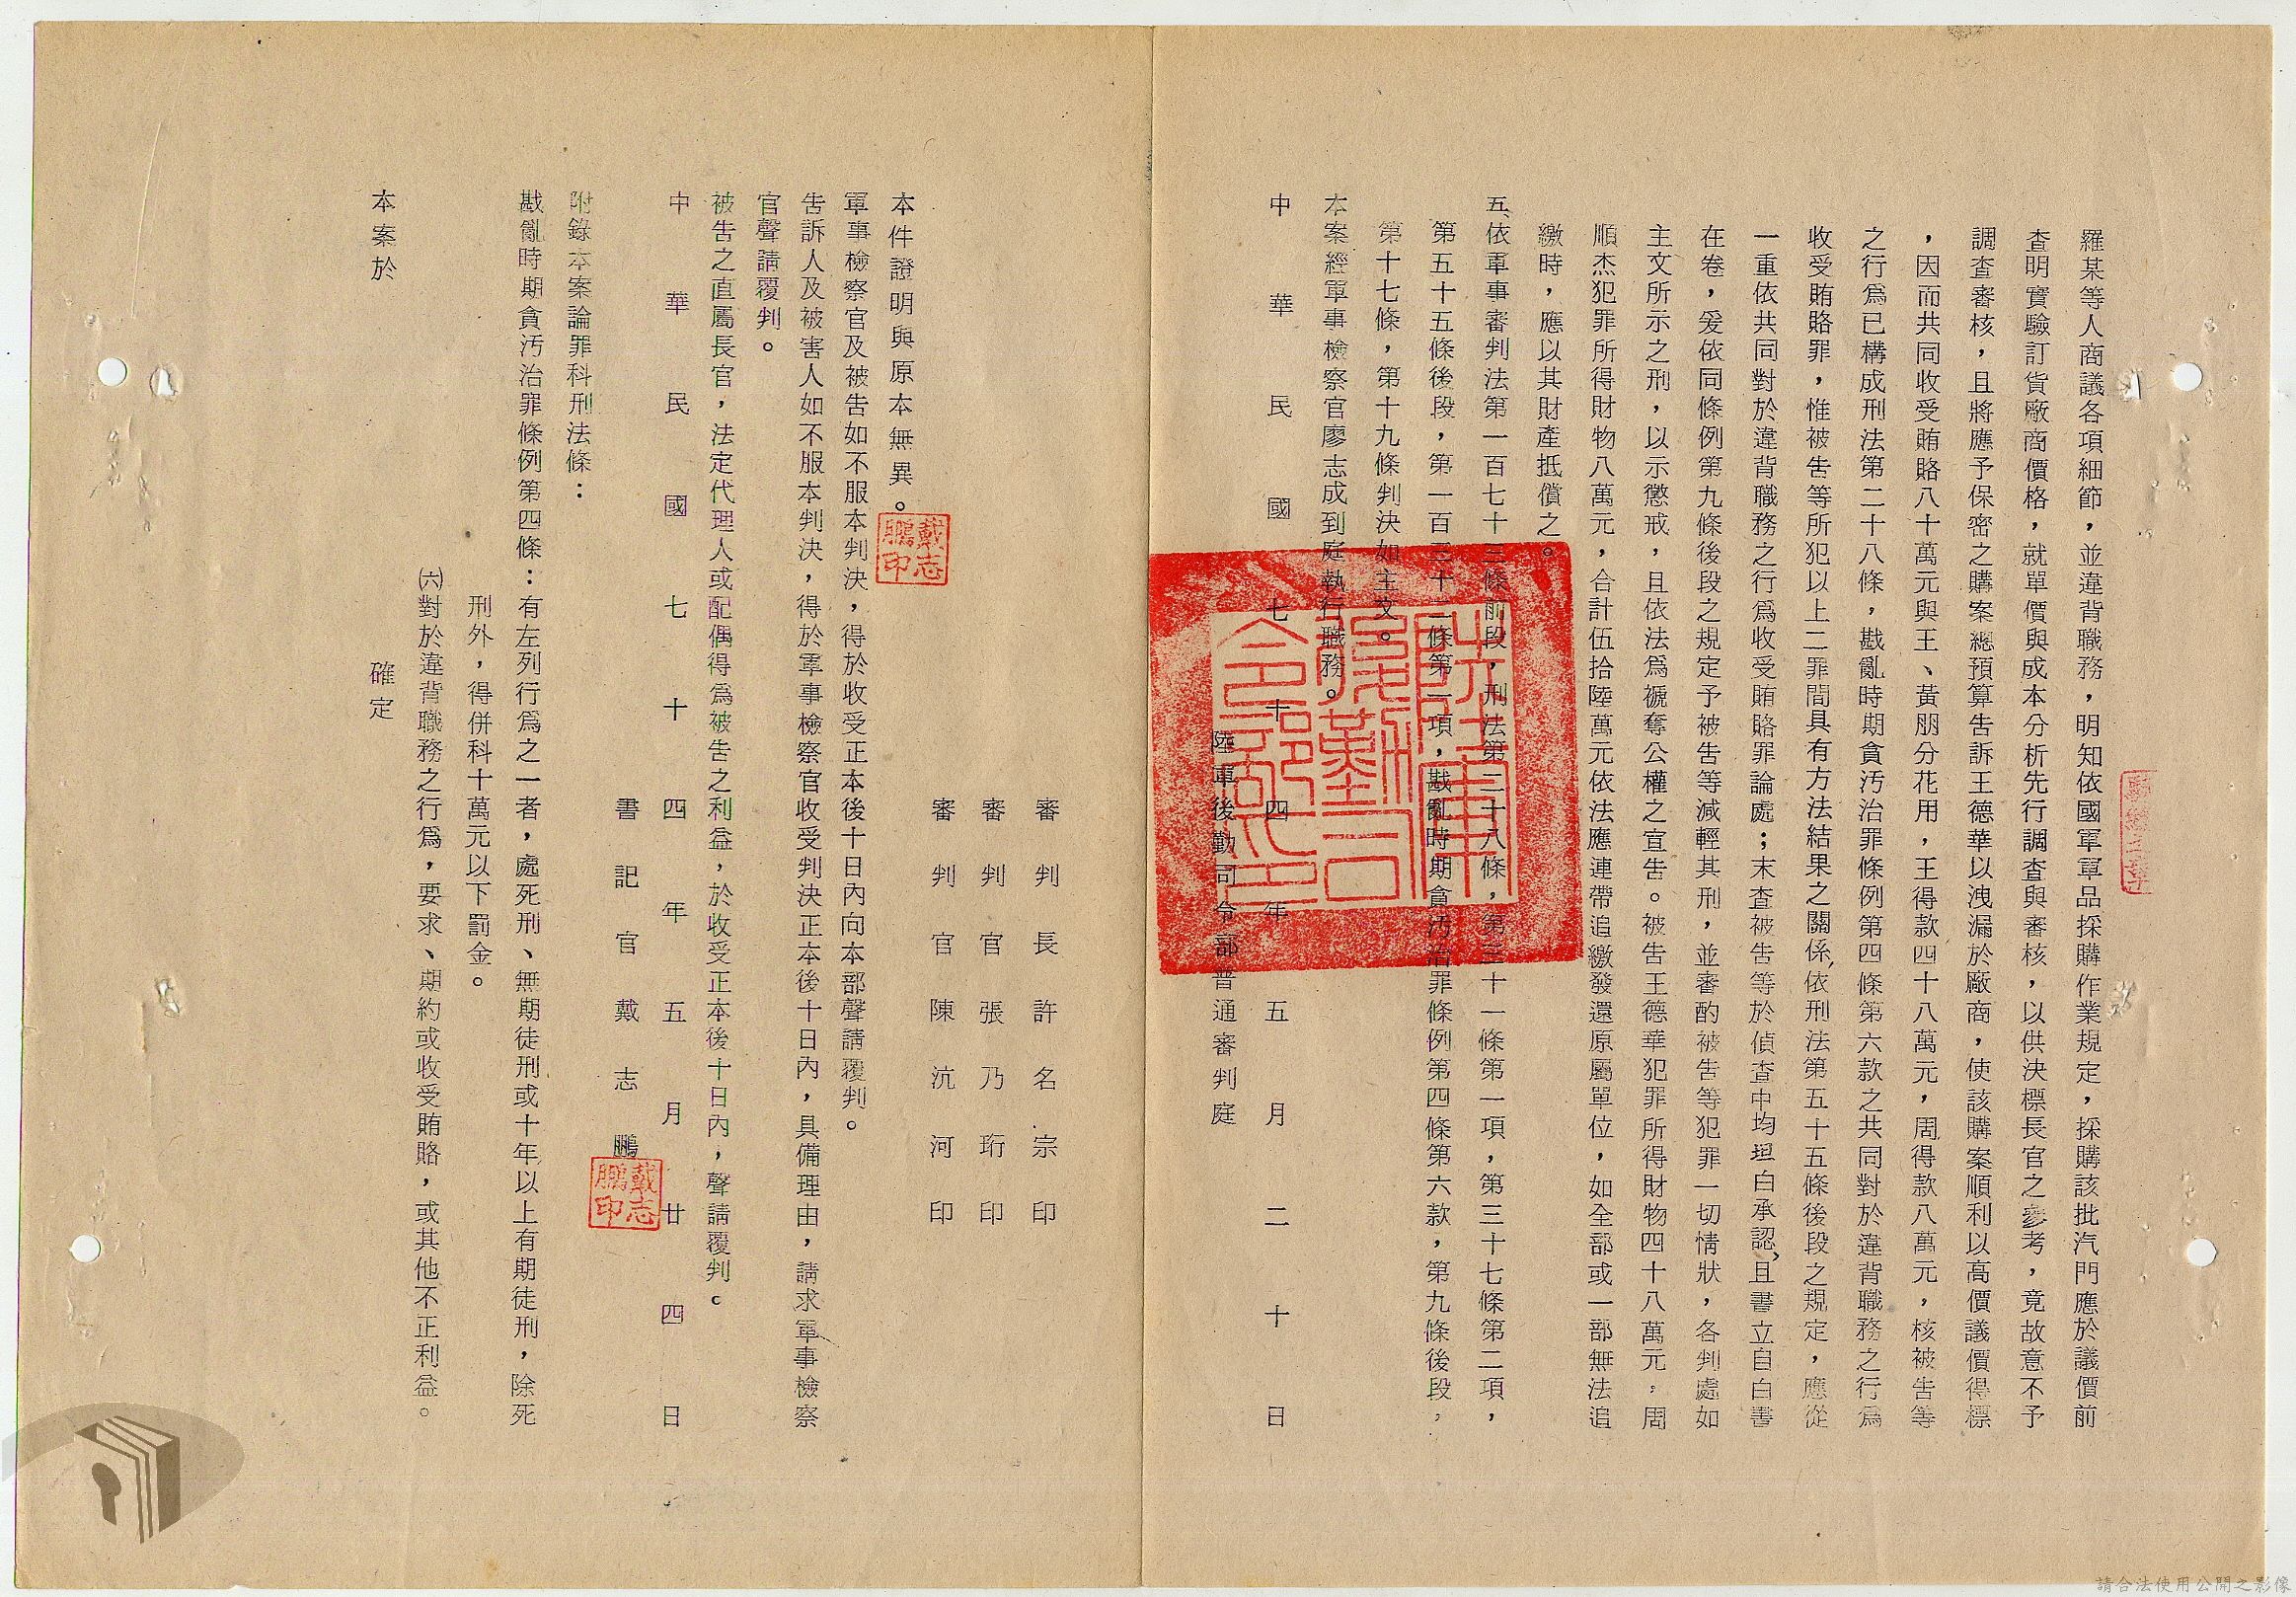 羅某等人商議各項細節，並違背職務，明知依國軍軍品採購作業規定，採購該批汽門應於議價前
查明實驗訂貨廠商價格，就單價與成本分析先行調查與審核，以供決標長官之參考，竟故意不予
調查審核，且將應予保密之購案總預算告訴王德華以洩漏於廠商，使該購案順利以高價議價得標
，因而共同收受賄賂八十萬元與王、黃朋分花用，王得款四十八萬元，周得款八萬元，核被告等
之行為已構成刑法第二十八條，戡亂時期貪污治罪條例第四條第六款之共同對於違背職務之行為
收受賄賂罪，惟被告等所犯以上二罪間具有方法結果之關係，依刑法第五十五條後段之規定，應從
一重依共同對於違背職務之行為收受賄賂罪論處；末查被告等於偵查中均坦白承認，且書立自白書
在卷，爰依同條例第九條後段之規定予被告等減輕其刑，並審酌被告等犯罪一切情狀，各判處如
主文所示之刑，以示懲戒，且依法為褫奪公權之宣告。被告王德華犯罪所得財物四十八萬元，周
順杰犯罪所得財物八萬元，合計伍拾陸萬元依法應連帶追繳發還原屬單位，如全部或一部無法追
繳時，應以其財產抵償之。
五、依軍事審判法第一百七十三條前段，刑法第二十八條，第三十一條第一項，第三十七條第二項，
第五十五條後段，第一百三十二條第一項，戡亂時期貪污治罪條例第四條第六款，第九條後段，
第十七條，第十九條判決如主文。
本案經軍事檢察官廖志成到庭執行職務。
中華民國七十四年五月二十日
陸軍後勤司令部普通審判庭
審判長許名宗印
審判官張乃珩印
審判官陳沆河印
本件證明與原本無異。
戴志鵬印
軍事檢察官及被告如不服本判決，得於收受正本後十日內向本部聲請覆判。
告訴人及被害人如不服本判決，得於軍事檢察官收受判決正本後十日內，具備理由，請求軍事檢察
官聲請覆判。
被告之直屬長官，法定代理人或配偶得為被告之利益，於收受正本後十日內，聲請覆判。
中華民國七十四年五月廿四日
書記官戴志鵬
戴志鵬印
附錄本案論罪科刑法條：
戡亂時期貪污治罪條例第四條：有左列行為之一者，處死刑、無期徒刑或十年以上有期徒刑，除死
刑外，得併科十萬元以下罰金。
㈥對於違背職務之行為，要求、期約或收受賄賂，或其他不正利益。
本案於　確定
請合法使用公開之影像